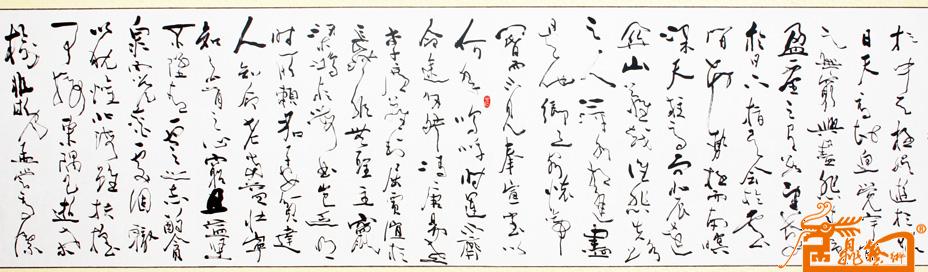 於中天極娛遊於暇
日天高地迥覺宇宙
之無窮興盡悲來
盈虛之有數望長安
於日下指吳會於雲
間地勢極而南溟
深天柱高而北辰遠
關山難越誰悲失路
之人萍水相逢盡
是他鄉之客懷帝
閽而不見奉宣室以
何年嗚呼時運不齊
命途多舛馮唐易老
李廣難封屈賈誼於
長沙非無聖主竄
梁鴻於海曲豈乏明
時所賴君子安貧達
人知命老當益壯寧
知白首之心窮且益堅
不墜青雲之志酌貪
泉而覺爽處涸轍
以猶懽北海雖扶搖
可接東隅已逝桑
榆非晚孟嘗高潔